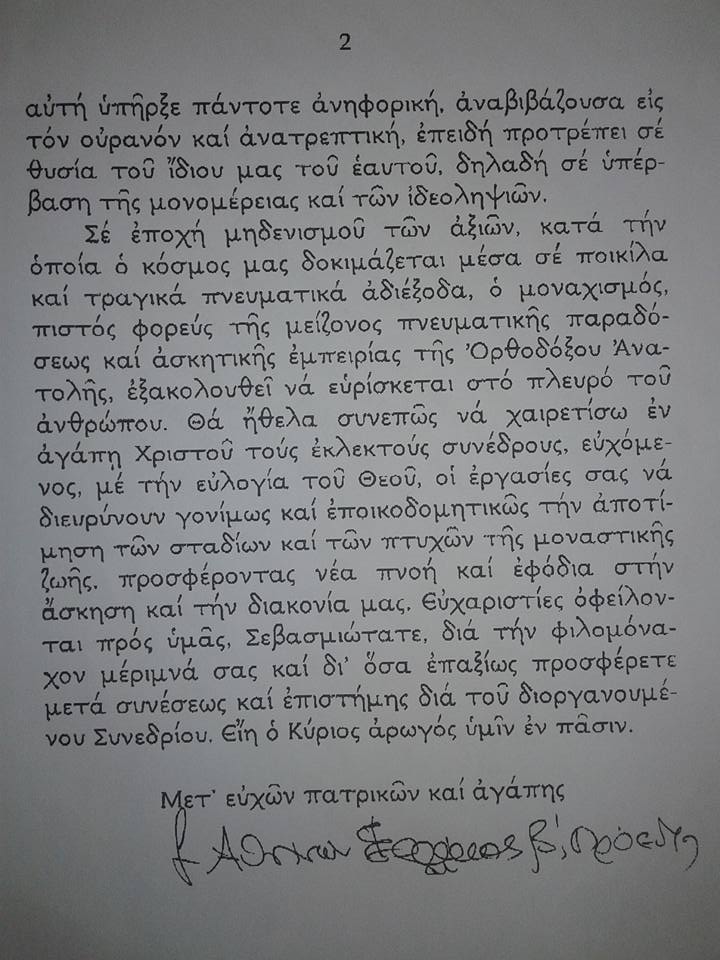 2
αὐτή ὑπῆρξε πάντοτε ἀνηφορική, ἀναβιβάζουσα εἰς
τόν οὐρανόν καί ἀνατρεπτική, ἐπειδή προτρέπει σέ
θυσία τοῦ ἴδιου μας τοῦ ἑαυτοῦ, δηλαδή σέ ὑπέρ-
βαση τῆς μονομέρειας καί τῶν ἰδεοληψιῶν.
Σέ ἐποχή μηδενισμοῦ τῶν ἀξιῶν, κατά τήν
ὁποία ὁ κόσμος μας δοκιμάζεται μέσα σέ ποικίλα
καί τραγικά πνευματικά ἀδιέξοδα, ὁ μοναχισμός,
πιστός φορεύς τῆς μείζονος πνευματικῆς παραδό-
σεως καί ἀσκητικῆς ἐμπειρίας τῆς Ὀρθοδόξου Ἀνα-
τολῆς, ἐξακολουθεῖ νά εὑρίσκεται στό πλευρό τοῦ
ἀνθρώπου. Θά ἤθελα συνεπῶς νά χαιρετίσω ἐν
ἀγάπῃ Χριστοῦ τούς ἐκλεκτούς συνέδρους, εὐχόμε-
νος, μέ τήν εὐλογία τοῦ Θεοῦ, οἱ ἐργασίες σας νά
διευρύνουν γονίμως καί ἐποικοδομητικῶς τήν ἀποτί-
μηση τῶν σταδίων καί τῶν πτυχῶν τῆς μοναστικῆς
ζωῆς, προσφέροντας νέα πνοή καί ἐφόδια στήν
ἄσκηση καί τήν διακονία μας. Εὐχαριστίες ὀφείλον-
ται πρός ὑμᾶς, Σεβασμιώτατε, διά τήν φιλομόνα-
χον μέριμνά σας καί δι' ὅσα ἐπαξίως προσφέρετε
μετά συνέσεως καί ἐπιστήμης διά τοῦ διοργανουμέ-
νου Συνεδρίου. Εἴη ὁ Κύριος ἀρωγός ὑμῖν ἐν πᾶσιν.
Μετ' εὐχῶν πατρικῶν καί ἀγάπης